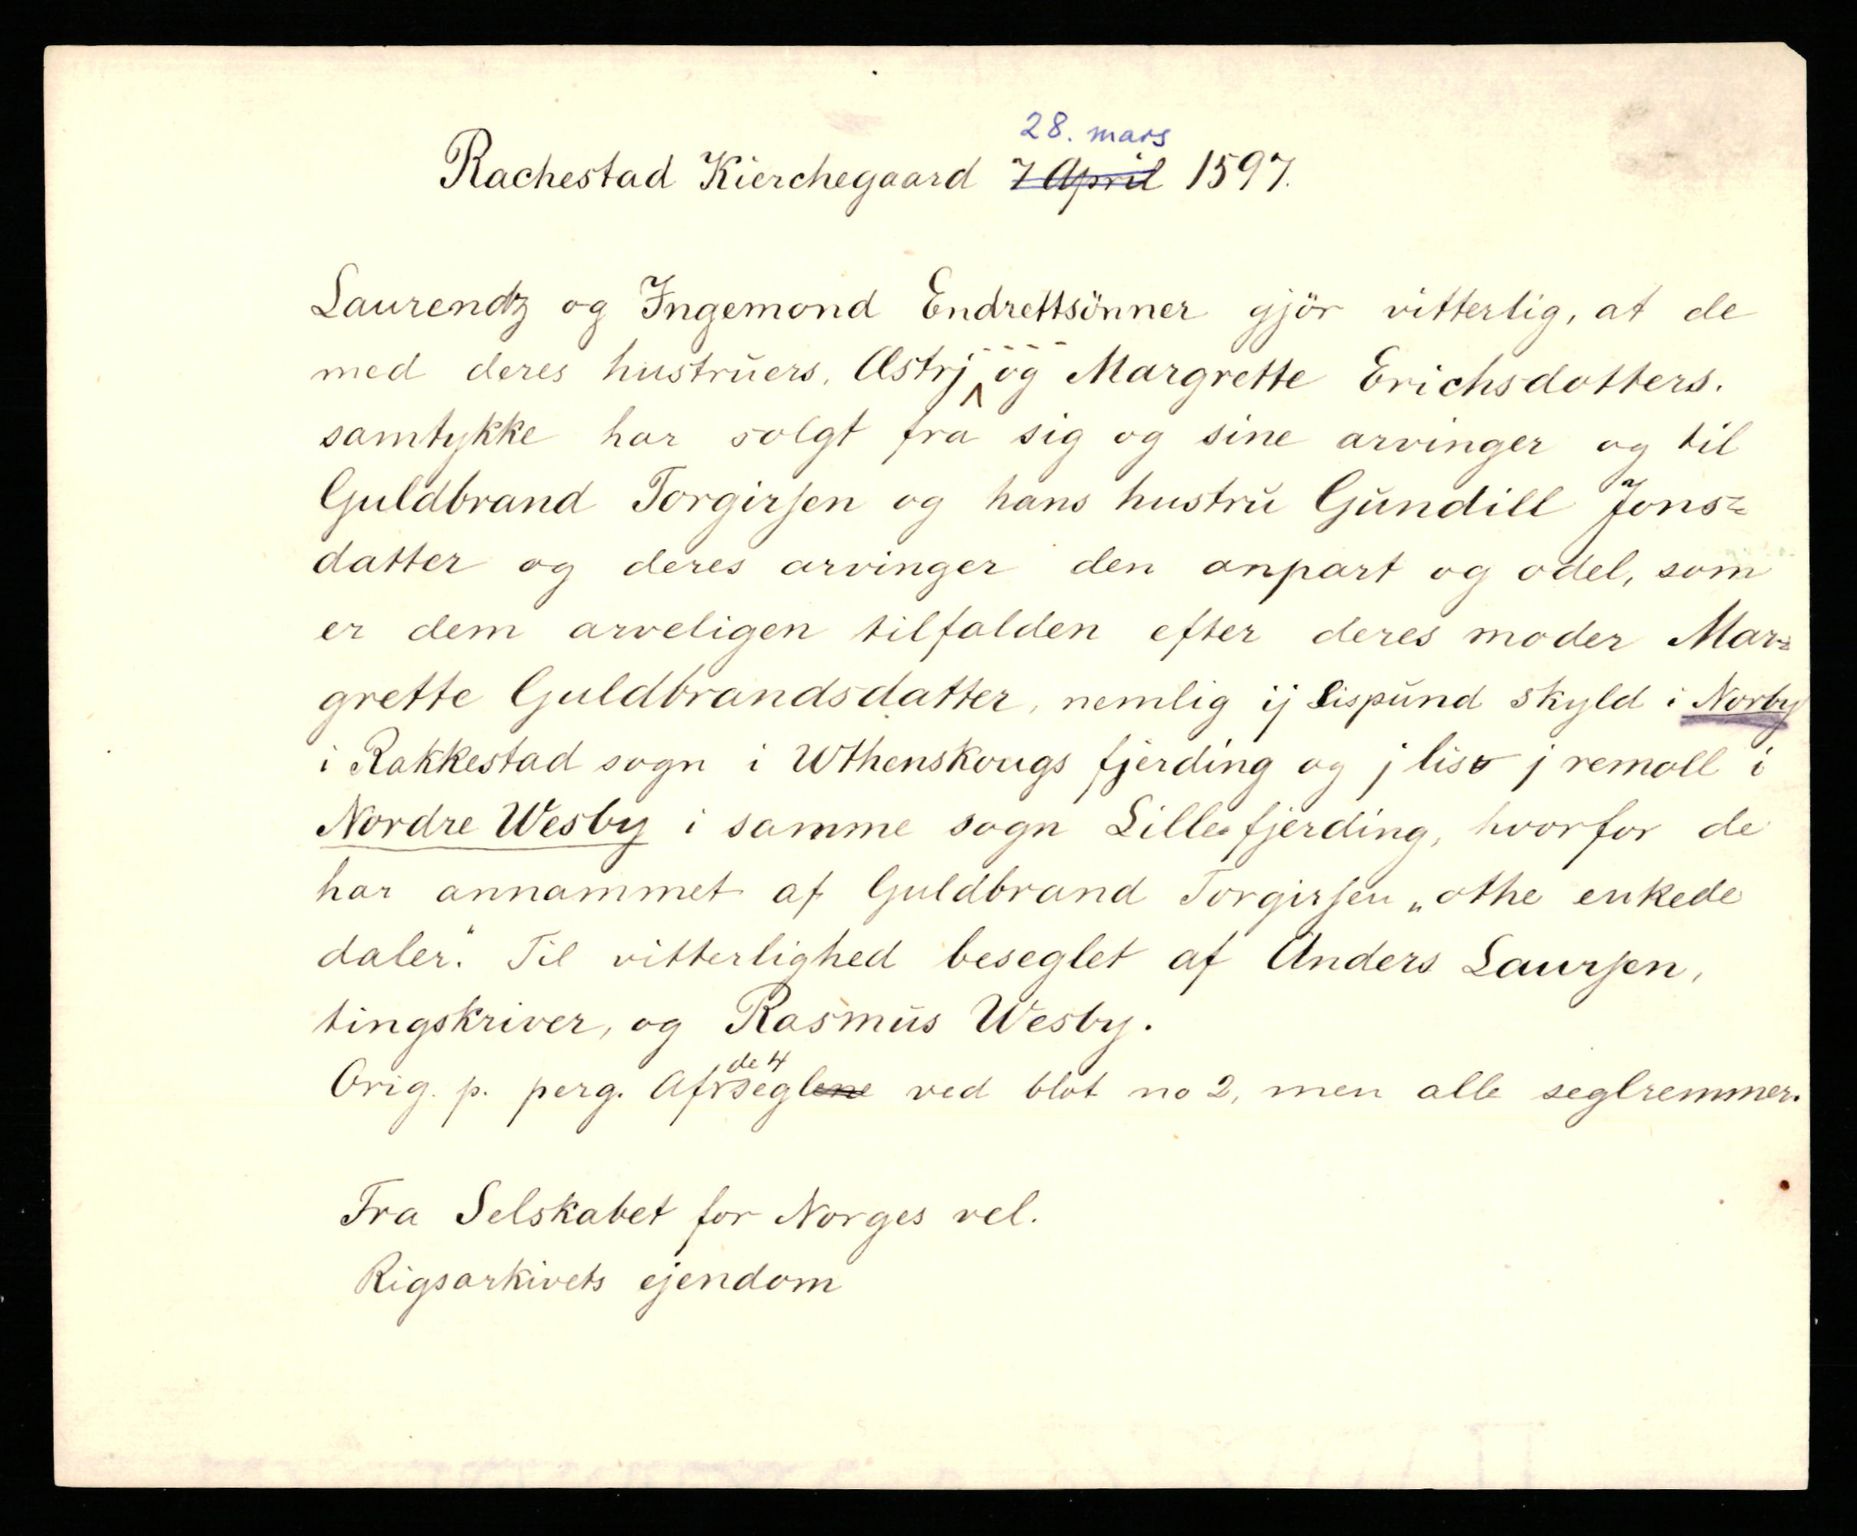 28. mars
Rachestad Kierchegaard 7 April 1597.
Laurendz og Ingemond Endrettsönner gjör vitterlig, at de
med deres hustruers, Æstrj - - - - og Margrette Erichsdotters.
samtykke har solgt fra sig og sine arvinger og til
Guldbrand Torgirsen og hans hustru Gundill Jons=
datter og deres arvinger den anpart og odel, som
er dem arveligen tilfalden efter deres moder Mar=
grette Guldbrandsdatter, nemlig ij Lispund skyld i Norby
i Rakkestad sogn i Wthenskougs fjerding og j lisø j remoll i
Nordre Wesby i samme sogn Lille fjerding, hvorfor de
har annammet af Guldbrand Torgirsen „othe enkede
daler“. Til vitterlighed beseglet af Anders Laursen,
tingskriver, og Rasmus Wesby.
de 4
Orig. p. perg. Af seglene ved blot no 2, men alle seglremmer.
Fra Selskabet for Norges vel.
Rigsarkivets ejendom